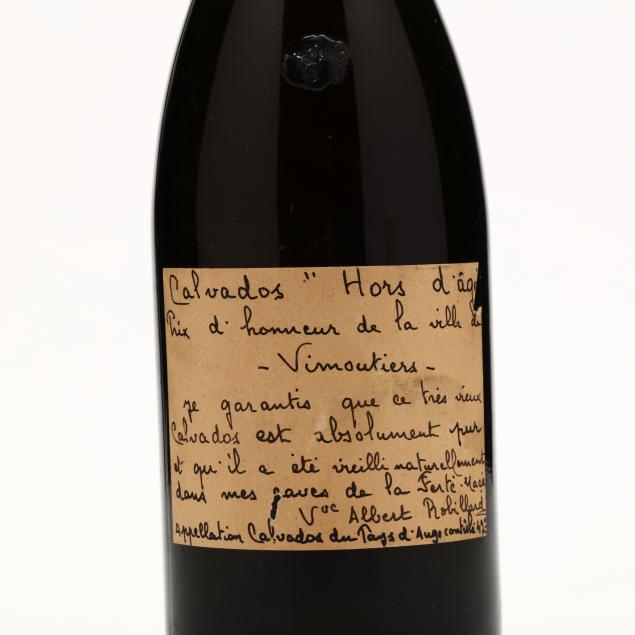 Calvados " Hors d'âge
Prix d'honneur de la ville de
- Vimoutiers -
Je garantis que ce très vieux
Calvados est absolument pur
et qu'il a été vieilli naturellement
dans mes caves de la Ferté-Macé
Vve Albert Robillard
Appellation Calvados du Pays d'Auge contrôlée